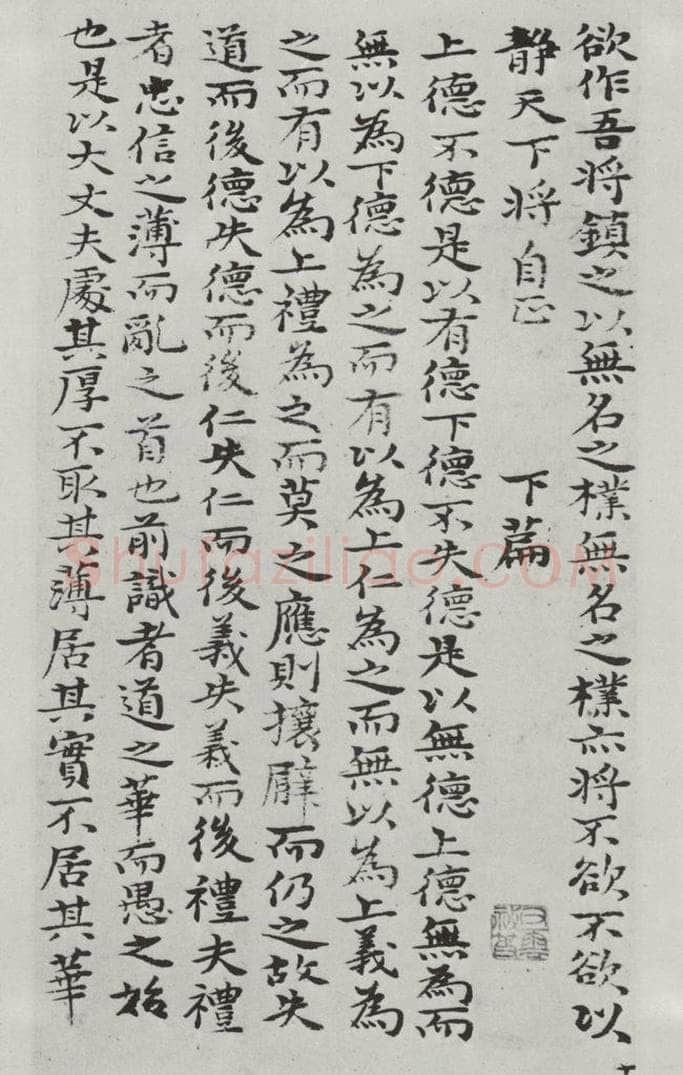 欲作吾将鎮之以無名之樸無名之樸亦将不欲不欲以
静天下将自正
下篇
上德不德是以有德下德不失德是以無德上德無為而
無以為下德為之而有以為上仁為之而無以為上義為
之而有以為上禮為之而莫之應則攘臂而仍之故失
道而後德失德而後仁失仁而後義失義而後禮夫禮
者忠信之薄而亂之首也前識者道之華而愚之始
也是以大丈夫處其厚不取其薄居其實不居其華
shufaziliao.COM